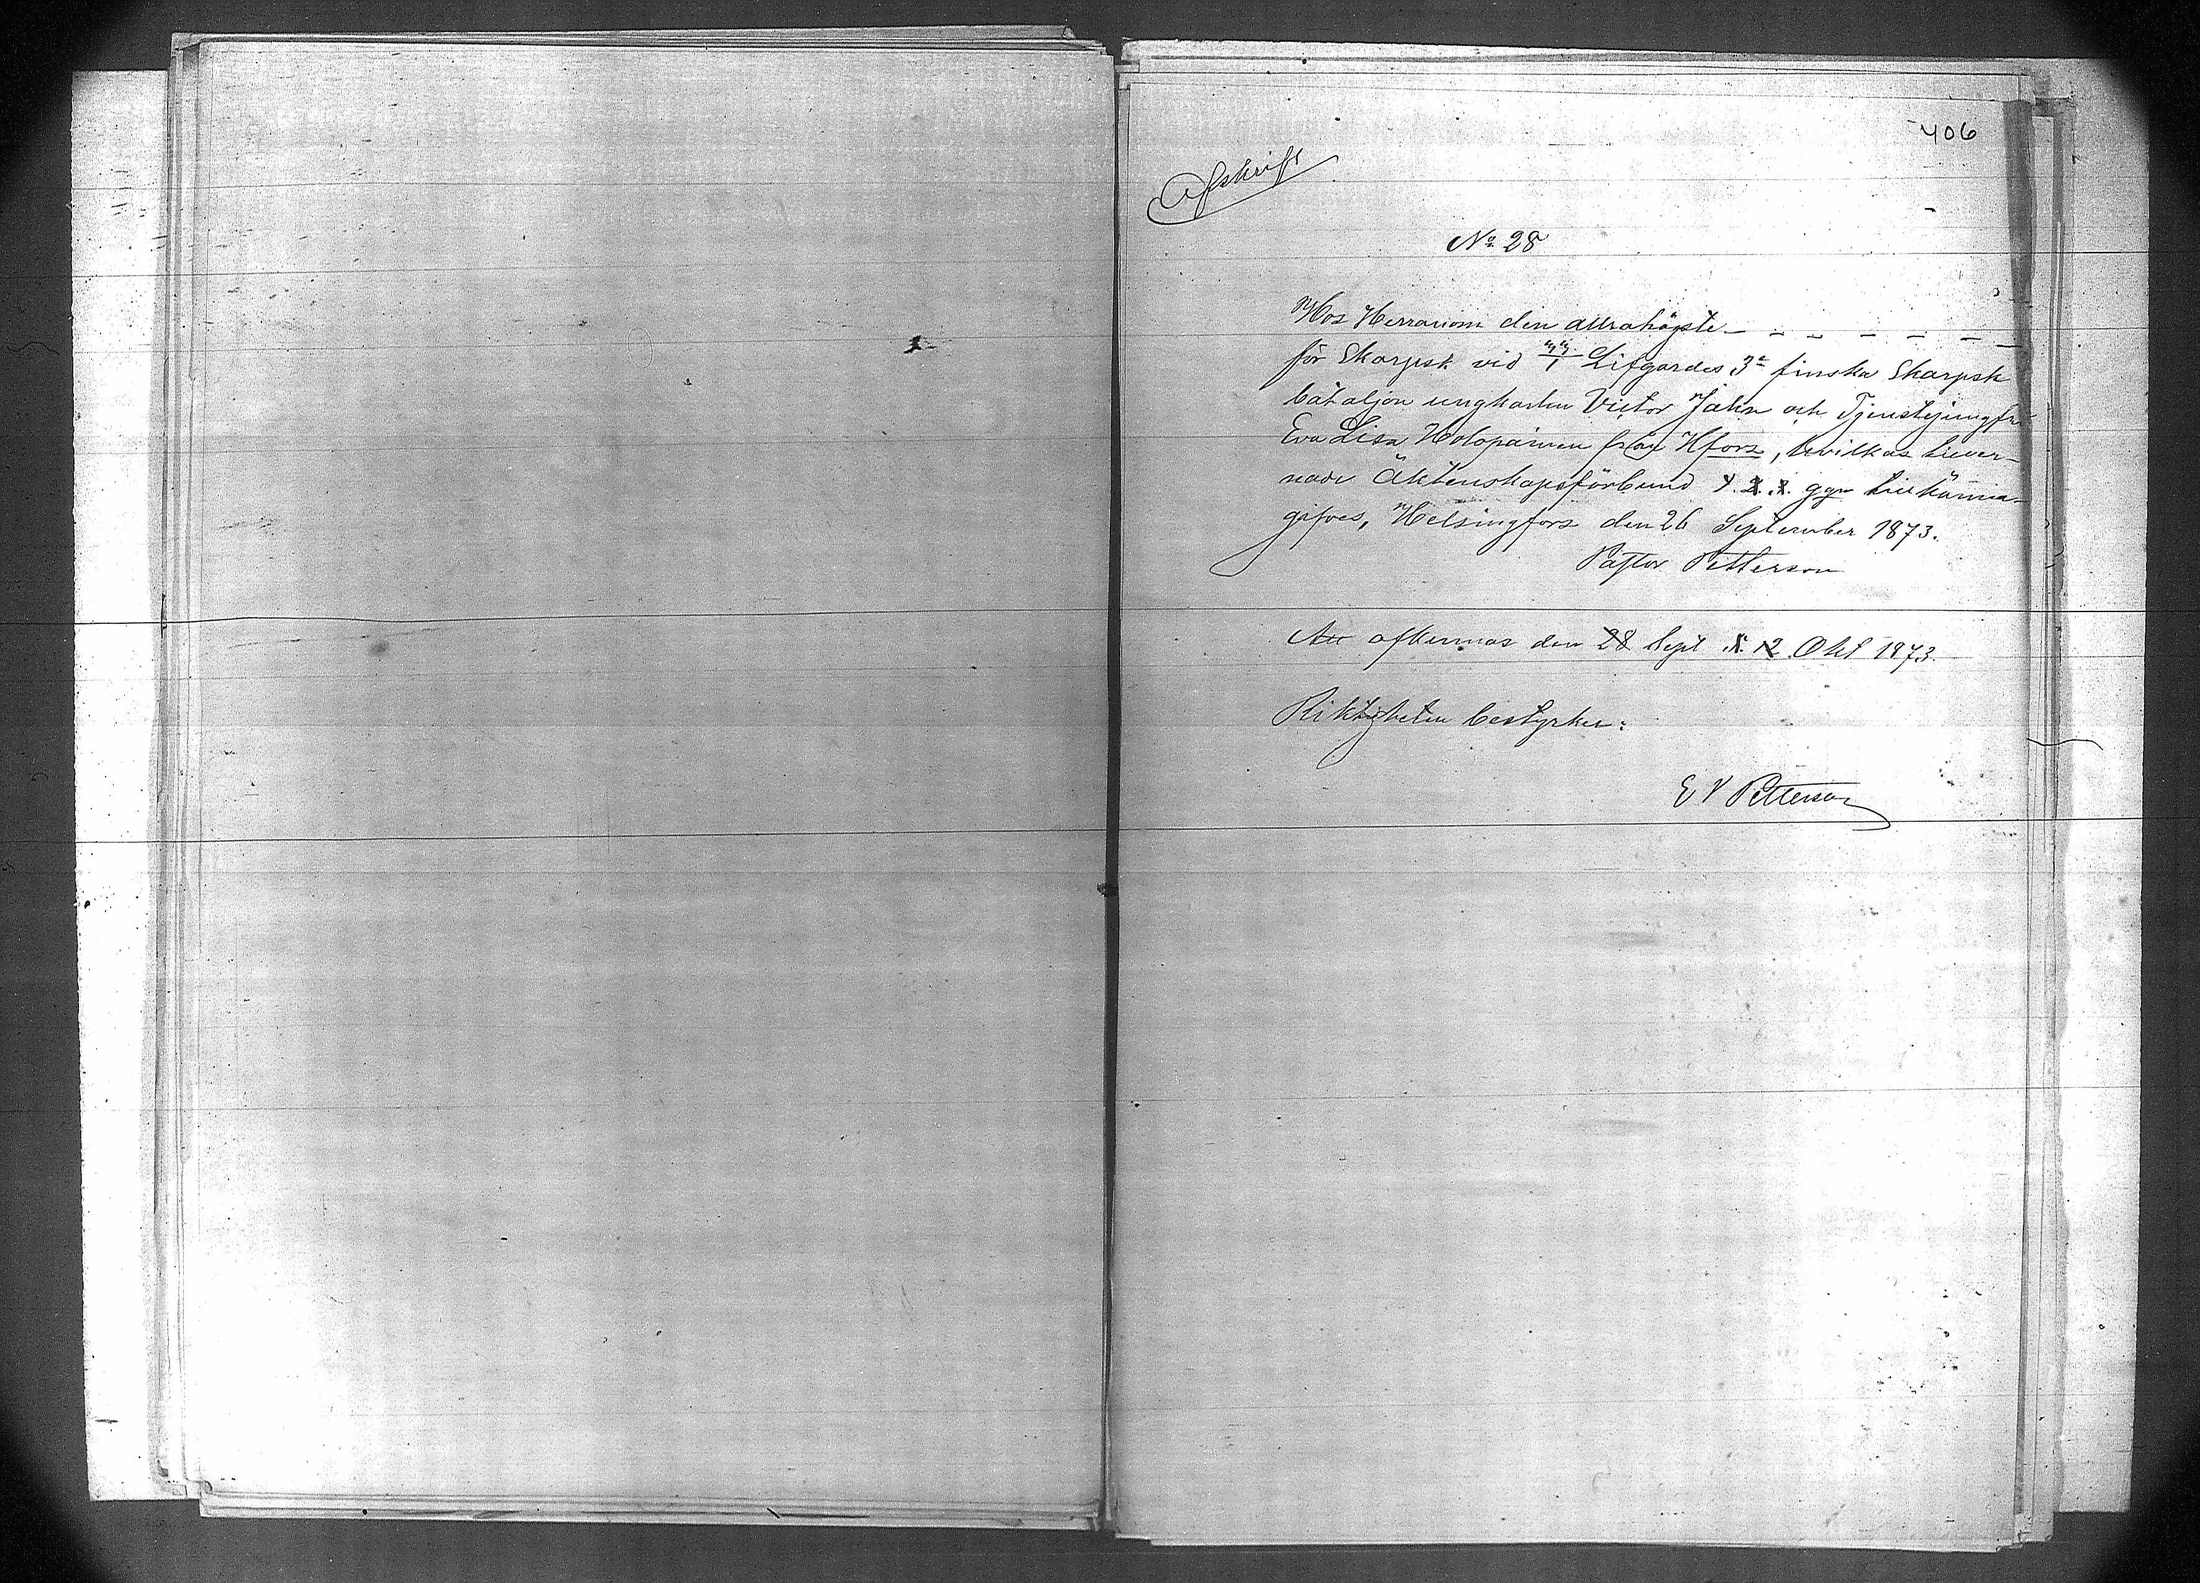 406
Afskrift
No 28
Hos Herranom den allrahögste - - - - - - -
för Skarpsk vid Lifgardes 3e finska Skarpsk
bataljon ungkarlen Victor Jahn och Tjenstejungfr
Eva Lisa Holopainen från Hfors, hvilkas lieuer-
nade Äktenskapsförbund 1. 2. 3. ggn tillkänna-
gifves, Helsingfors den 26 September 1873.
Pastor Petterson
Att afkunnas den 28 Sept 5. 12 Okt 1873.
Riktigheten bestyrker:
E V Petterson